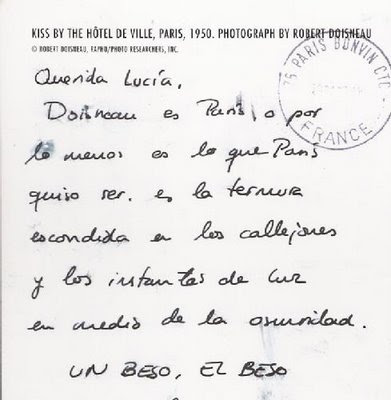 KISS BY THE HÔTEL DE VILLE, PARIS, 1950. PHOTOGRAPH BY ROBERT DOISNEAU
© ROBERT DOISNEAU, RAPHO/PHOTO RESEARCHERS, INC.
75 PARIS BONVIN CTC
FRANCE
Querida Lucía,
Doisneau es París, o por
lo menos es lo que París
quiso ser. es la ternura
escondida en los callejones
y los instantes de luz
en medio de la oscuridad.
UN BESO, EL BESO